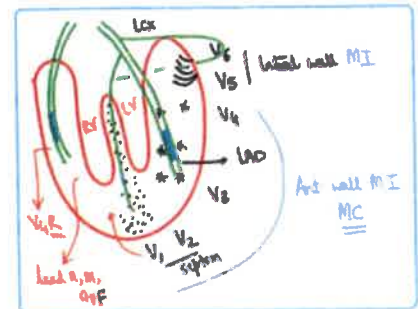 LCX
V6
V5
Lateral wall MI
V4
RV
LV
LAD
V3
Ant wall MI
MC
V4R
V1 V2
septum
Lead II, III,
aVF